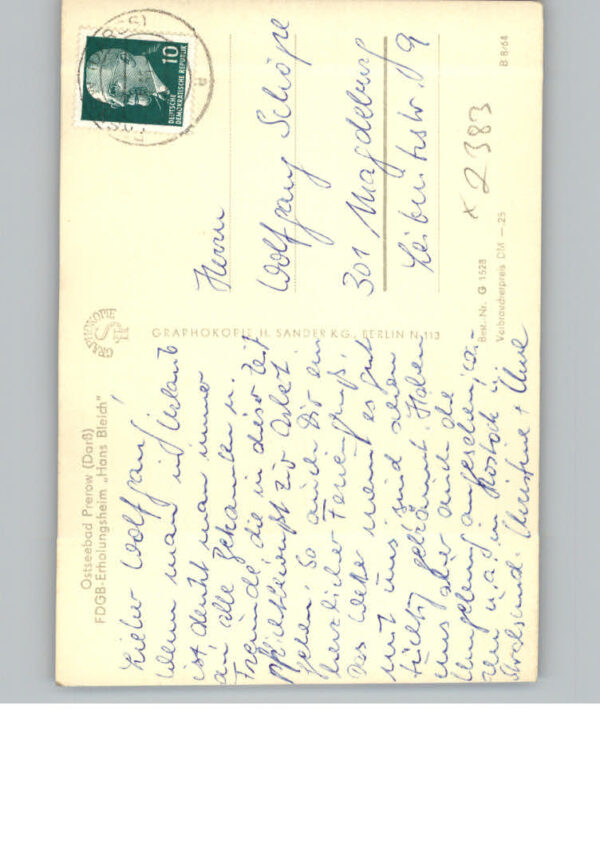 Ostseebad Prerow (Darß)
FDGB-Erholungsheim „Hans Bleich"
Lieber Wolfgang!
Wenn man in Urlaub
ist denkt man immer
an alle Bekannten u.
Freunde, die in dieser Zeit
pflichtbewußt zur Arbeit
gehen. So auch Dir ein
herzlicher Feriengruß.
Das Wetter meint es gut
mit uns, sind schon
tüchtig gebräunt. Haben
uns aber auch die
Umgebung angesehen,
u.a. in Rostock u.
Stralsund. Christine + Uwe
GRAPHOKOPIE
GRAPHOKOPIE H. SANDER KG., BERLIN N 113
10
DEUTSCHE
DEMOKRATISCHE REPUBLIK
Herrn
Wolfgang Schöpe
301 Magdeburg
Leibnitzstr. 19
x 2383
Best.-Nr. G 1528
Verbraucherpreis DM —.25
B 8/64